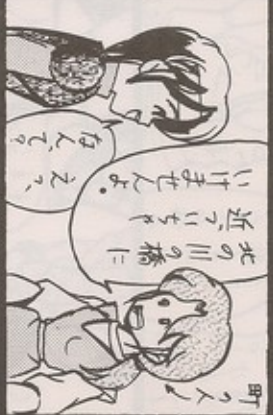 町の人♪
北の川の橋に
近づいちゃ
いけませんよ。
えっ、
なんで?